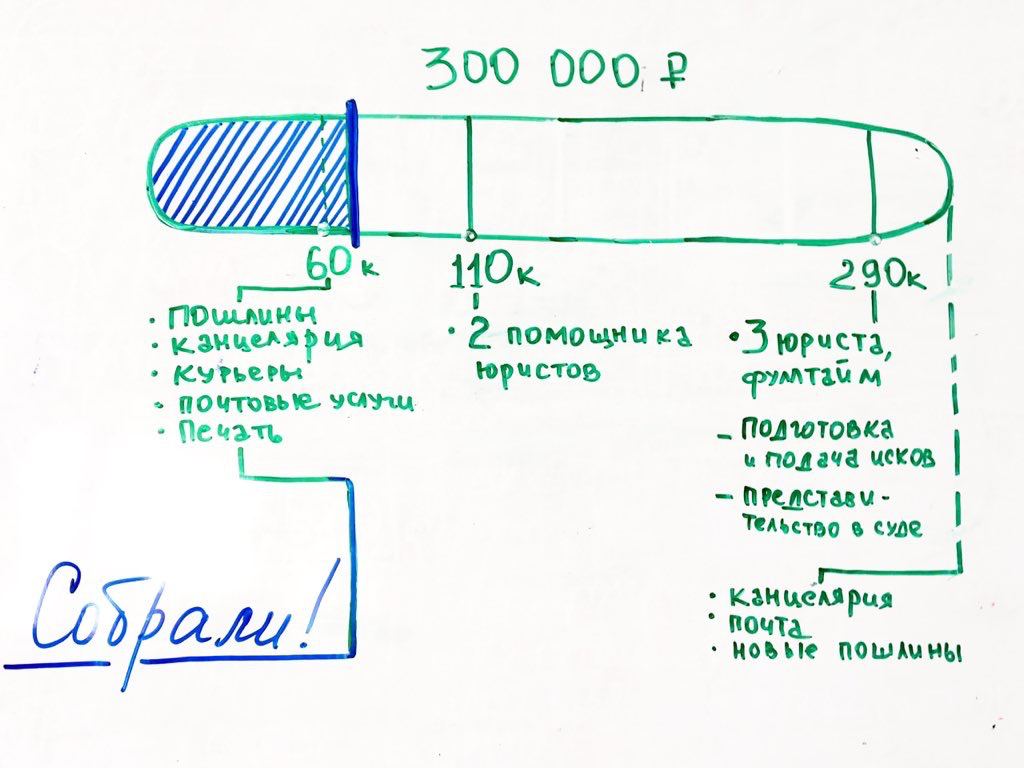 300 000 ₽
60к
• Пошлины
• канцелярия
• курьеры
• почтовые услуги
• Печать
Собрали!
110к
• 2 помощника
юристов
290к
• 3 юриста,
фуллтайм
– подготовка
и подача исков
– представи-
тельство в суде
• канцелярия
• почта
• новые пошлины